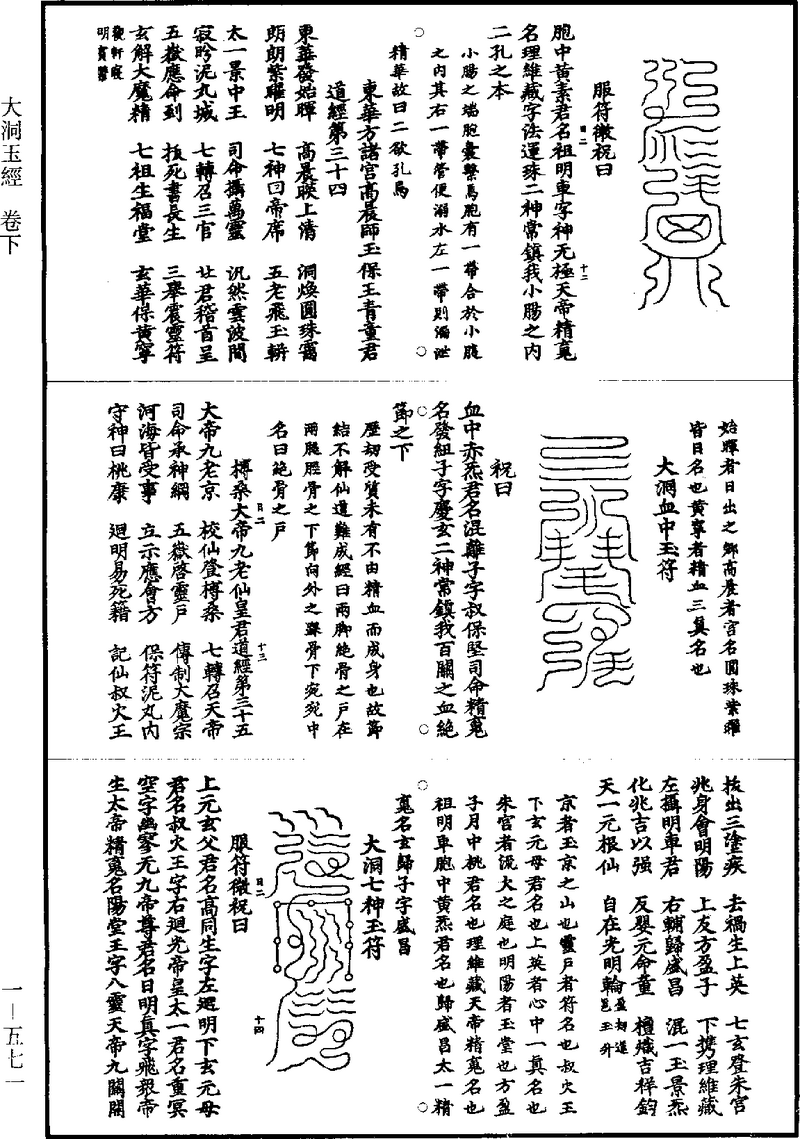 大洞玉經　卷下
一—五七一
服符微祝曰
胞中黃素君名祖明車字神无極天帝精䰟
名理維藏字法運珠二神常鎮我小腸之内
二孔之本
小腸之端胞囊繫焉胞有一帶合於小腹
之内其右一帶管便溺水左一帶則漏泄
精華故曰二欲孔焉
東華方諸宮高晨師玉保王青童君
道經第三十四
東華發始暉　高晨映上清　洞煥圓珠靄
朗朗紫曜明　七神回帝席　五老飛玉輧
太一景中王　司命攝萬靈　汎然雲波間
寂昤泥丸城　七轉召三官　北君稽首呈
五嶽應命到　拔死書長生　三舉震靈符
玄解大魔精　七祖生福堂　玄華保黃寧
始暉者日出之鄉高晨者宮名圓珠紫曜
皆日名也黃寧者精血三真名也
大洞血中玉符
祝曰
血中赤炁君名混離子字叔保堅司命精䰟
名發紐子字慶玄二神常鎮我百關之血絕
節之下
歷劫受質未有不由精血而成身也故節
結不解仙道難成經曰兩脚絕骨之戶在
兩腿脛骨之下節向外之踝骨下宛宛中
名曰絕骨之戶
榑桑大帝九老仙皇君道經第三十五
大帝九老京　校仙登榑桑　七轉召天帝
司命承神綱　五嶽啓靈戶　傳制大魔宗
河海皆受事　立示應會方　保符泥丸内
守神曰桃康　迴明易死籍　記仙叔火王
拔出三塗疾　去禍生上英　七玄登朱宮
兆身會明陽　上友方盈子　下携理維藏
左攝明車君　右輔歸盛昌　混一玉景炁
化兆吉以强　反嬰元命童　檀熾吉祥鈞
天一元根仙　自在光明輪
京者玉京之山也靈戶者符名也叔火王
下玄元母君名也上英者心中一真名也
朱宮者流火之庭也明陽者玉堂也方盈
子月中桃君名也理維藏天帝精䰟名也
祖明車胞中黃炁君名也歸盛昌太一精
䰟名玄歸子字盛昌
大洞七神玉符
服符微祝曰
上元玄父君名高同生字左迴明下玄元母
君名叔火王字右迴光帝呈太一君名重冥
空字幽寥无九帝尊君名日明真字飛褧帝
生太帝精䰟名陽堂王字八靈天帝九關關